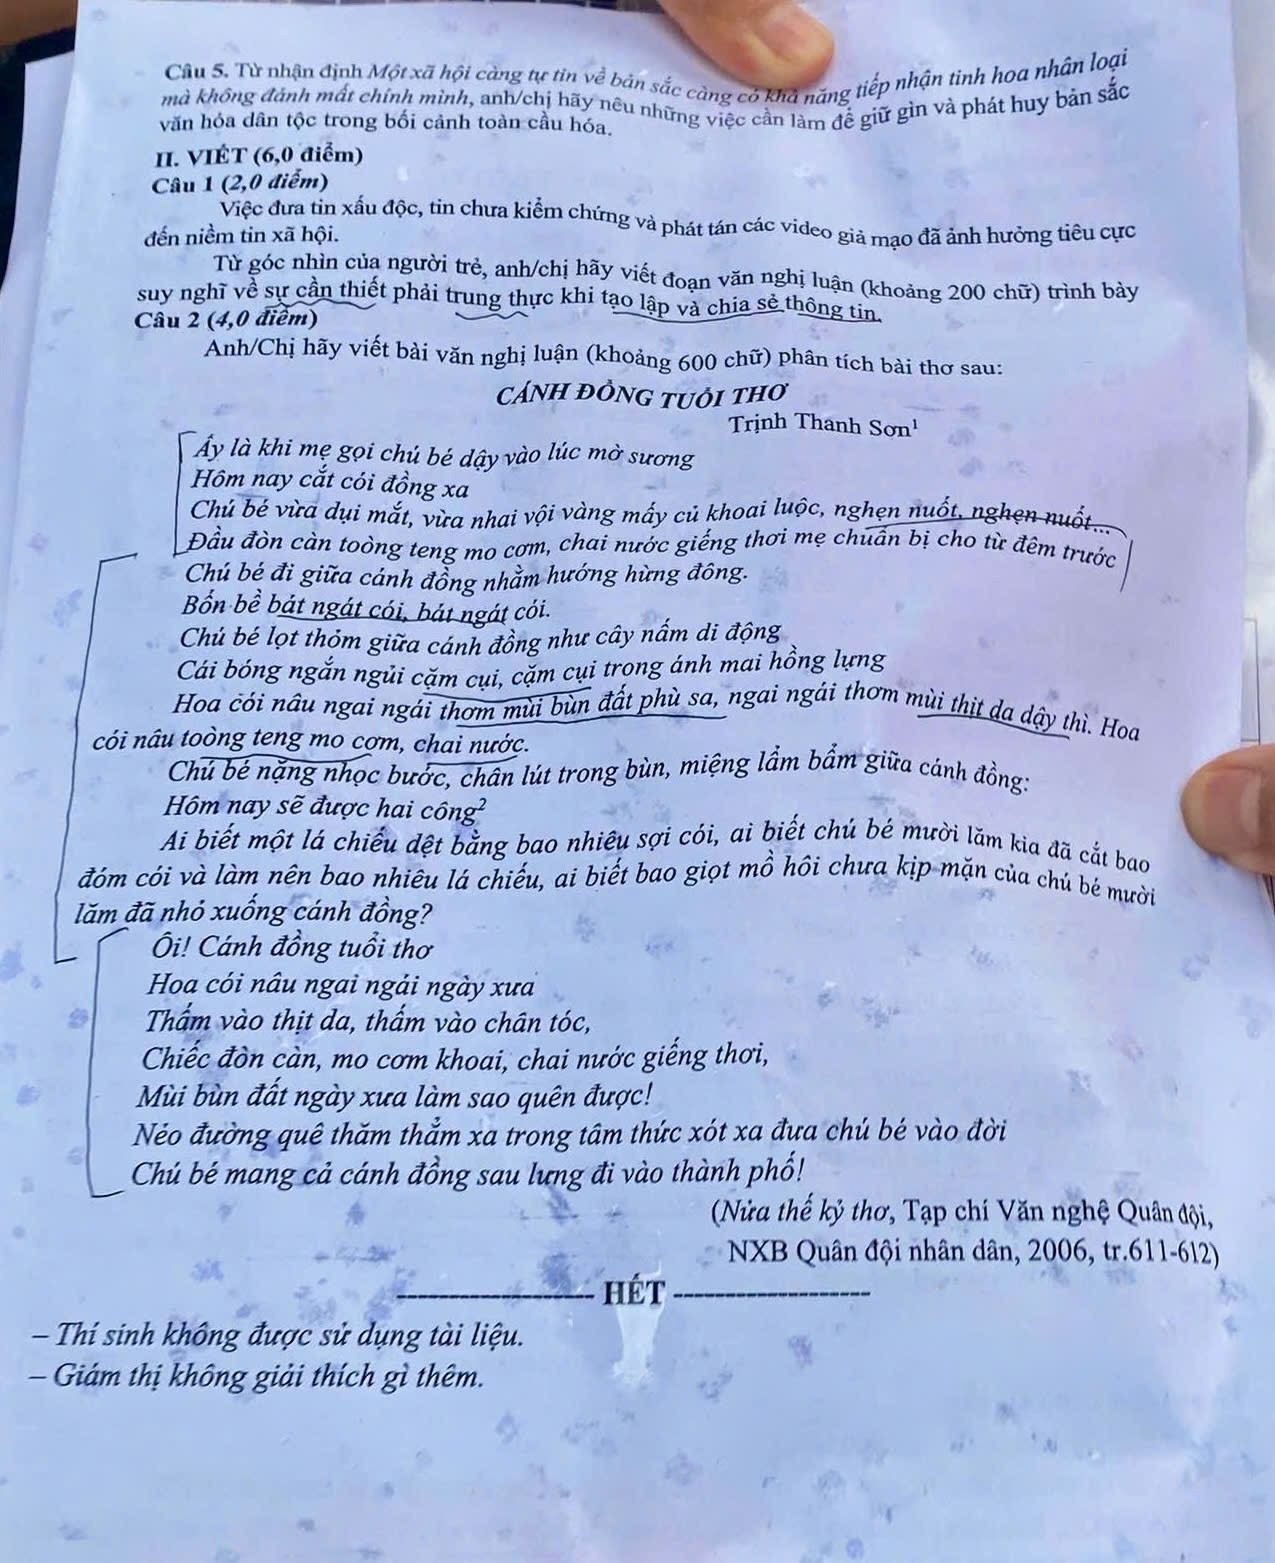 Câu 5. Từ nhận định Một xã hội càng tự tin về bản sắc càng có khả năng tiếp nhận tinh hoa nhân loại
mà không đánh mất chính mình, anh/chị hãy nêu những việc cần làm để giữ gìn và phát huy bản sắc
văn hóa dân tộc trong bối cảnh toàn cầu hóa.
II. VIẾT (6,0 điểm)
Câu 1 (2,0 điểm)
Việc đưa tin xấu độc, tin chưa kiểm chứng và phát tán các video giả mạo đã ảnh hưởng tiêu cực
đến niềm tin xã hội.
Từ góc nhìn của người trẻ, anh/chị hãy viết đoạn văn nghị luận (khoảng 200 chữ) trình bày
suy nghĩ về sự cần thiết phải trung thực khi tạo lập và chia sẻ thông tin.
Câu 2 (4,0 điểm)
Anh/Chị hãy viết bài văn nghị luận (khoảng 600 chữ) phân tích bài thơ sau:
CÁNH ĐỒNG TUỔI THƠ
Trịnh Thanh Sơn¹
Ấy là khi mẹ gọi chú bé dậy vào lúc mờ sương
Hôm nay cắt cói đồng xa
Chú bé vừa dụi mắt, vừa nhai vội vàng mấy củ khoai luộc, nghẹn nuốt, nghẹn nuốt...
Đầu đòn càn toòng teng mo cơm, chai nước giếng thơi mẹ chuẩn bị cho từ đêm trước
Chú bé đi giữa cánh đồng nhằm hướng hừng đông.
Bốn bề bát ngát cói, bát ngát cói.
Chú bé lọt thỏm giữa cánh đồng như cây nấm di động
Cái bóng ngắn ngủi cặm cụi, cặm cụi trong ánh mai hồng lựng
Hoa cói nâu ngai ngái thơm mùi bùn đất phù sa, ngai ngái thơm mùi thịt da dậy thì. Hoa
cói nâu toòng teng mo cơm, chai nước.
Chú bé nặng nhọc bước, chân lút trong bùn, miệng lẩm bẩm giữa cánh đồng:
Hôm nay sẽ được hai công²
Ai biết một lá chiếu dệt bằng bao nhiêu sợi cói, ai biết chú bé mười lăm kia đã cắt bao
đóm cói và làm nên bao nhiêu lá chiếu, ai biết bao giọt mồ hôi chưa kịp mặn của chú bé mười
lăm đã nhỏ xuống cánh đồng?
Ôi! Cánh đồng tuổi thơ
Hoa cói nâu ngai ngái ngày xưa
Thấm vào thịt da, thấm vào chân tóc,
Chiếc đòn càn, mo cơm khoai, chai nước giếng thơi,
Mùi bùn đất ngày xưa làm sao quên được!
Nẻo đường quê thăm thẳm xa trong tâm thức xót xa đưa chú bé vào đời
Chú bé mang cả cánh đồng sau lưng đi vào thành phố!
(Nửa thế kỷ thơ, Tạp chí Văn nghệ Quân đội,
NXB Quân đội nhân dân, 2006, tr.611-612)
-------------------- HẾT --------------------
– Thí sinh không được sử dụng tài liệu.
– Giám thị không giải thích gì thêm.